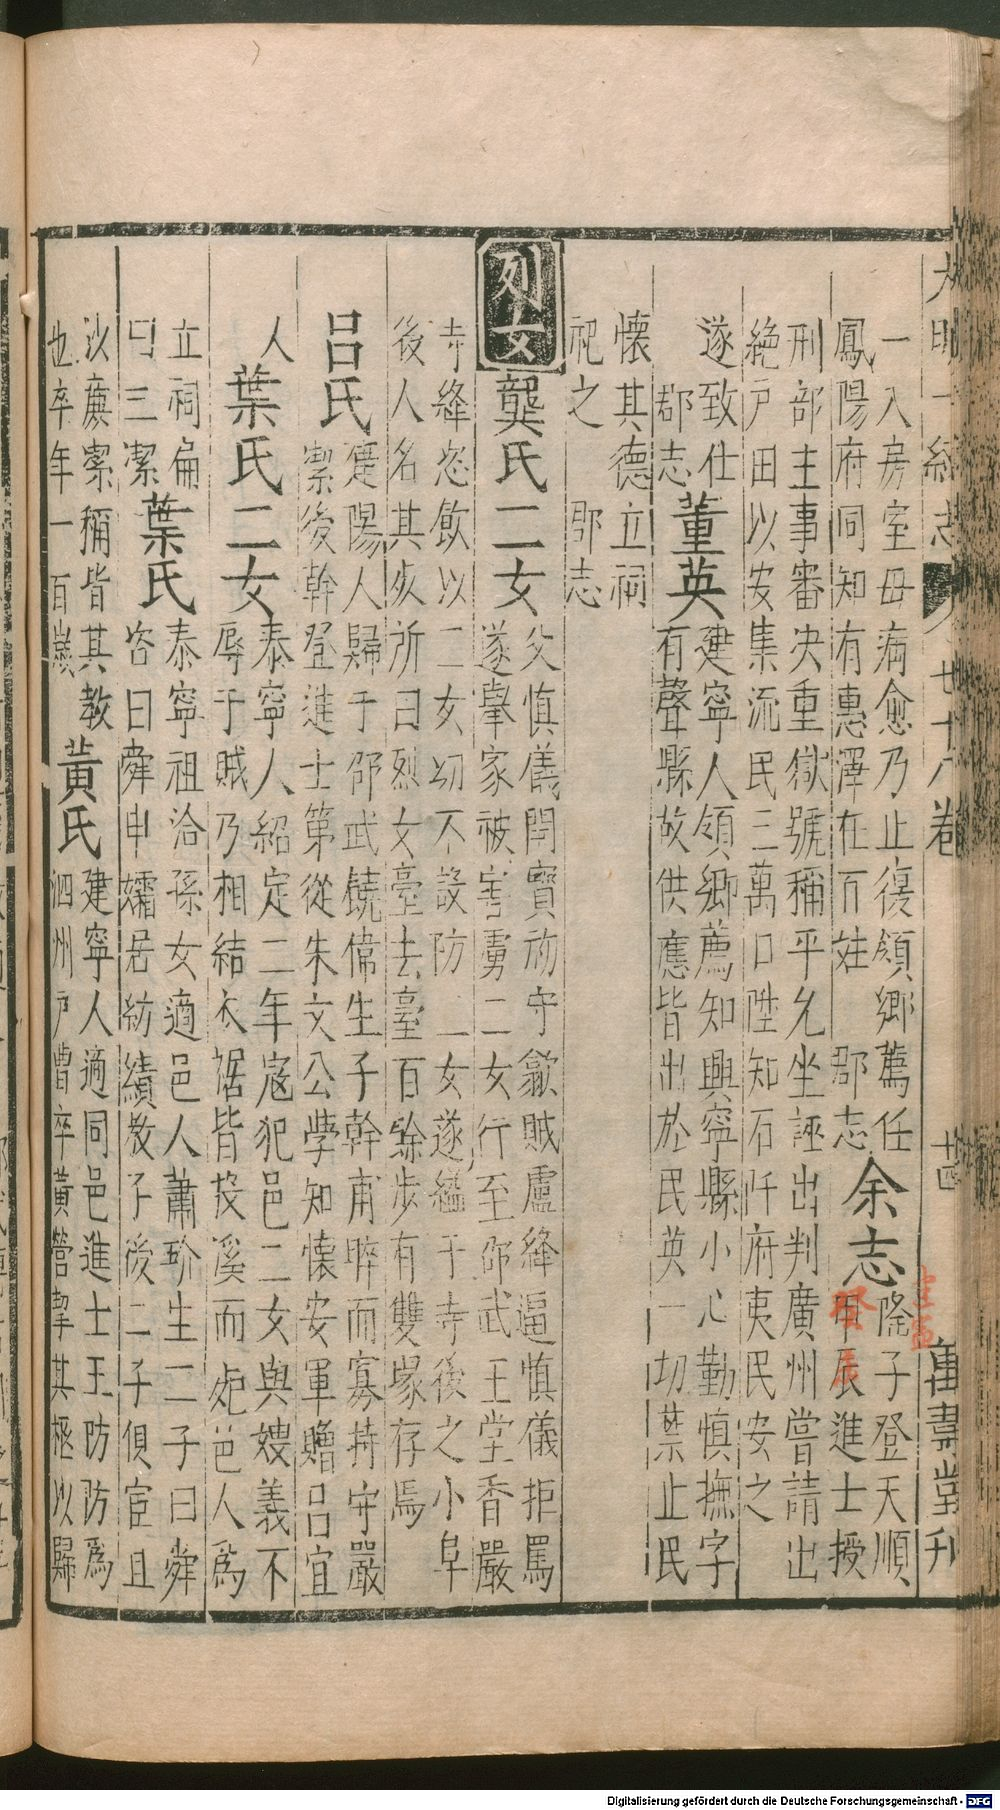 大明一統志 七十八卷 廿四 萬壽堂刋
一入房室母病愈乃止復領鄉薦任
鳳陽府同知有惠澤在百姓 郡志
余志
隆子登天順
甲辰進士授
癸未
刑部主事審决重獄號稱平允坐誣出判廣州嘗請出
絶戸田以安集流民三萬口陞知石阡府夷民安之
遂致仕
郡志
董英
建寧人領鄉薦知興寧縣小心勤慎撫字
有聲縣故供應皆出於民英一切禁止民
懷其德立祠
祀之 郡志
列女
龔氏二女
父慎儀開寳初守歙賊盧絳逼慎儀拒罵
遂舉家被害虜二女行至邵武王堂香嚴
寺絳恣飲以二女切不設防二女遂縊于寺後之小阜
後人名其死所曰烈女臺去臺百餘步有雙塚存焉
吕氏
建陽人歸于邵武饒偉生子幹甫晬而寡持守嚴
潔後幹登進士第從朱文公學知懷安軍贈吕宜
人
葉氏二女
泰寧人紹定二年宼犯邑二女與嫂義不
辱于賊乃相結衣裾皆投溪而死邑人爲
立祠扁
曰三潔
葉氏
泰寧祖洽孫女適邑人蕭玠生二子曰舜
咨曰舜申孀居紡績教子後二子俱宦且
以亷潔稱皆其教
也卒年一百歲
黄氏
建寧人適同邑進士王防防爲
泗州戸曹卒黄營挈其柩以歸
Digitalisierung gefördert durch die Deutsche Forschungsgemeinschaft - DFG